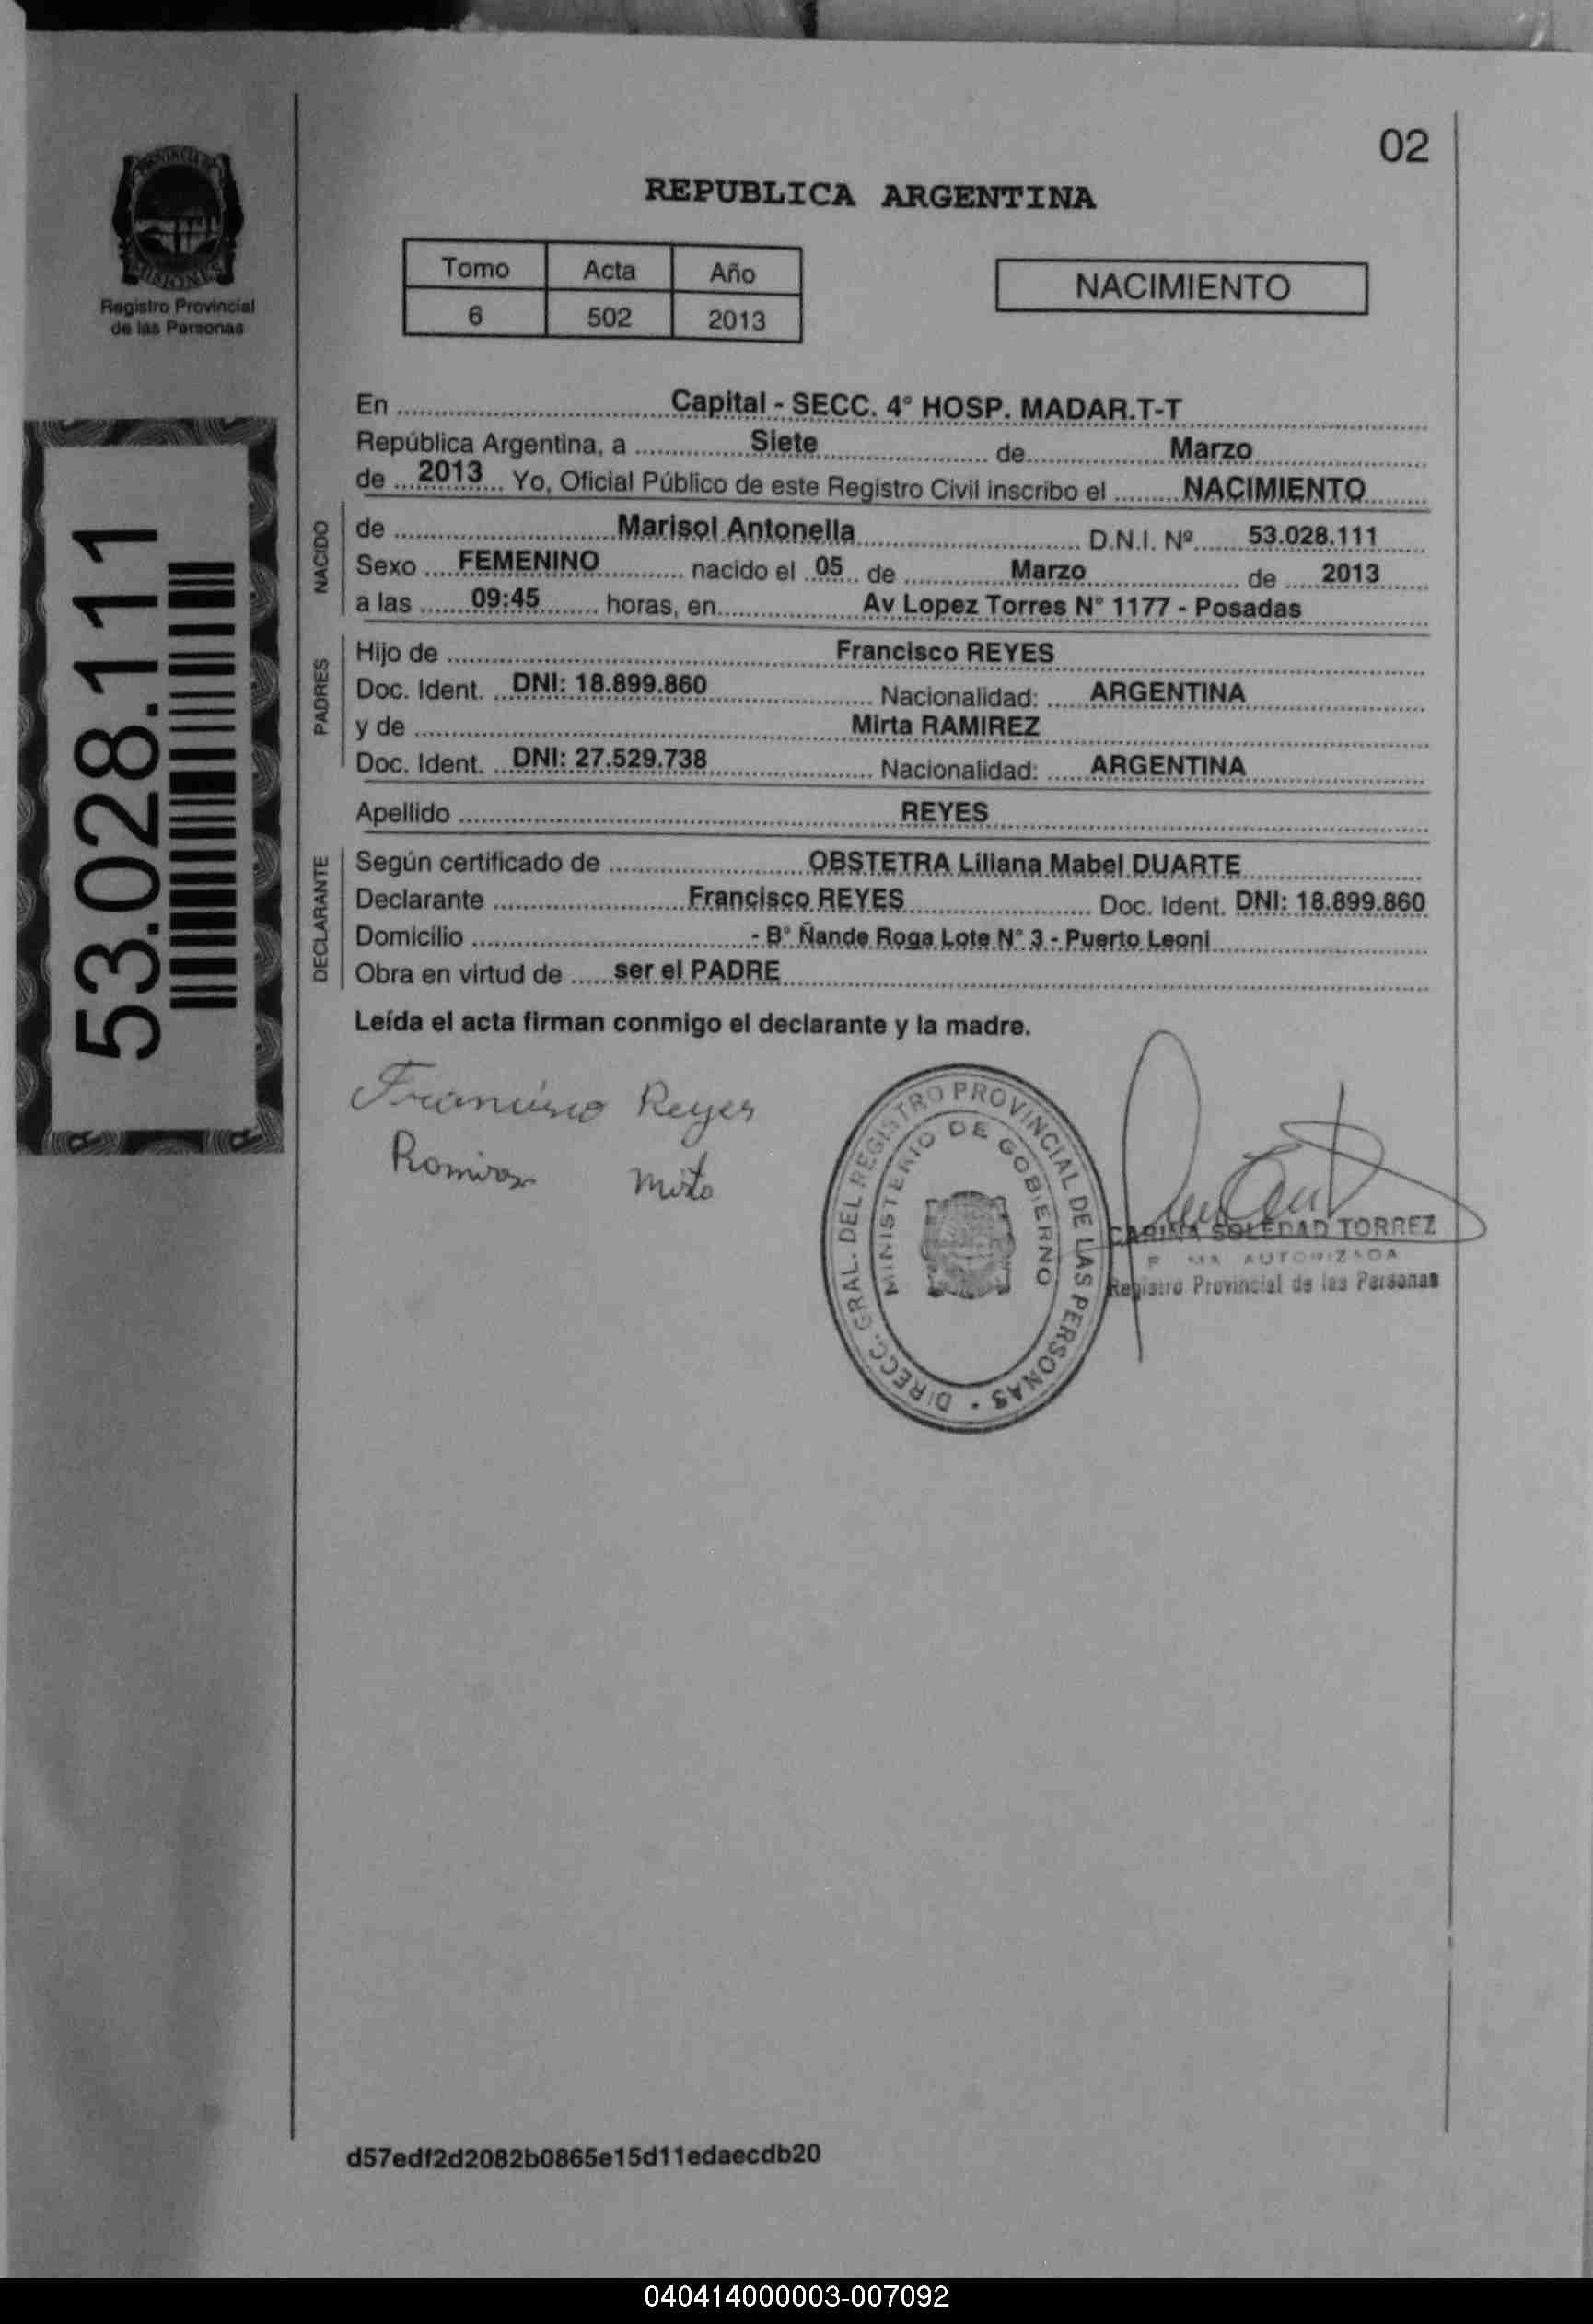 02
REPUBLICA ARGENTINA
PROVINCIA DE
MISIONES
Registro Provincial
de las Personas
Tomo Acta Año
6 502 2013
NACIMIENTO
53.028.111
En Capital - SECC. 4° HOSP. MADAR.T-T
República Argentina, a Siete de Marzo
de 2013 Yo, Oficial Público de este Registro Civil inscribo el NACIMIENTO
NACIDO
de Marisol Antonella D.N.I. Nº 53.028.111
Sexo FEMENINO nacido el 05 de Marzo de 2013
a las 09:45 horas, en Av Lopez Torres N° 1177 - Posadas
PADRES
Hijo de Francisco REYES
Doc. Ident. DNI: 18.899.860 Nacionalidad: ARGENTINA
y de Mirta RAMIREZ
Doc. Ident. DNI: 27.529.738 Nacionalidad: ARGENTINA
Apellido REYES
DECLARANTE
Según certificado de OBSTETRA Liliana Mabel DUARTE
Declarante Francisco REYES Doc. Ident. DNI: 18.899.860
Domicilio - B° Ñande Roga Lote N° 3 - Puerto Leoni
Obra en virtud de ser el PADRE
Leída el acta firman conmigo el declarante y la madre.
Francisco Reyes
DIRECC. GRAL. DEL REGISTRO PROVINCIAL DE LAS PERSONAS
MINISTERIO DE GOBIERNO
CARINA SOLEDAD TORREZ
AUTORIZADA
Registro Provincial de las Personas
d57edf2d2082b0865e15d11edaecdb20
040414000003-007092